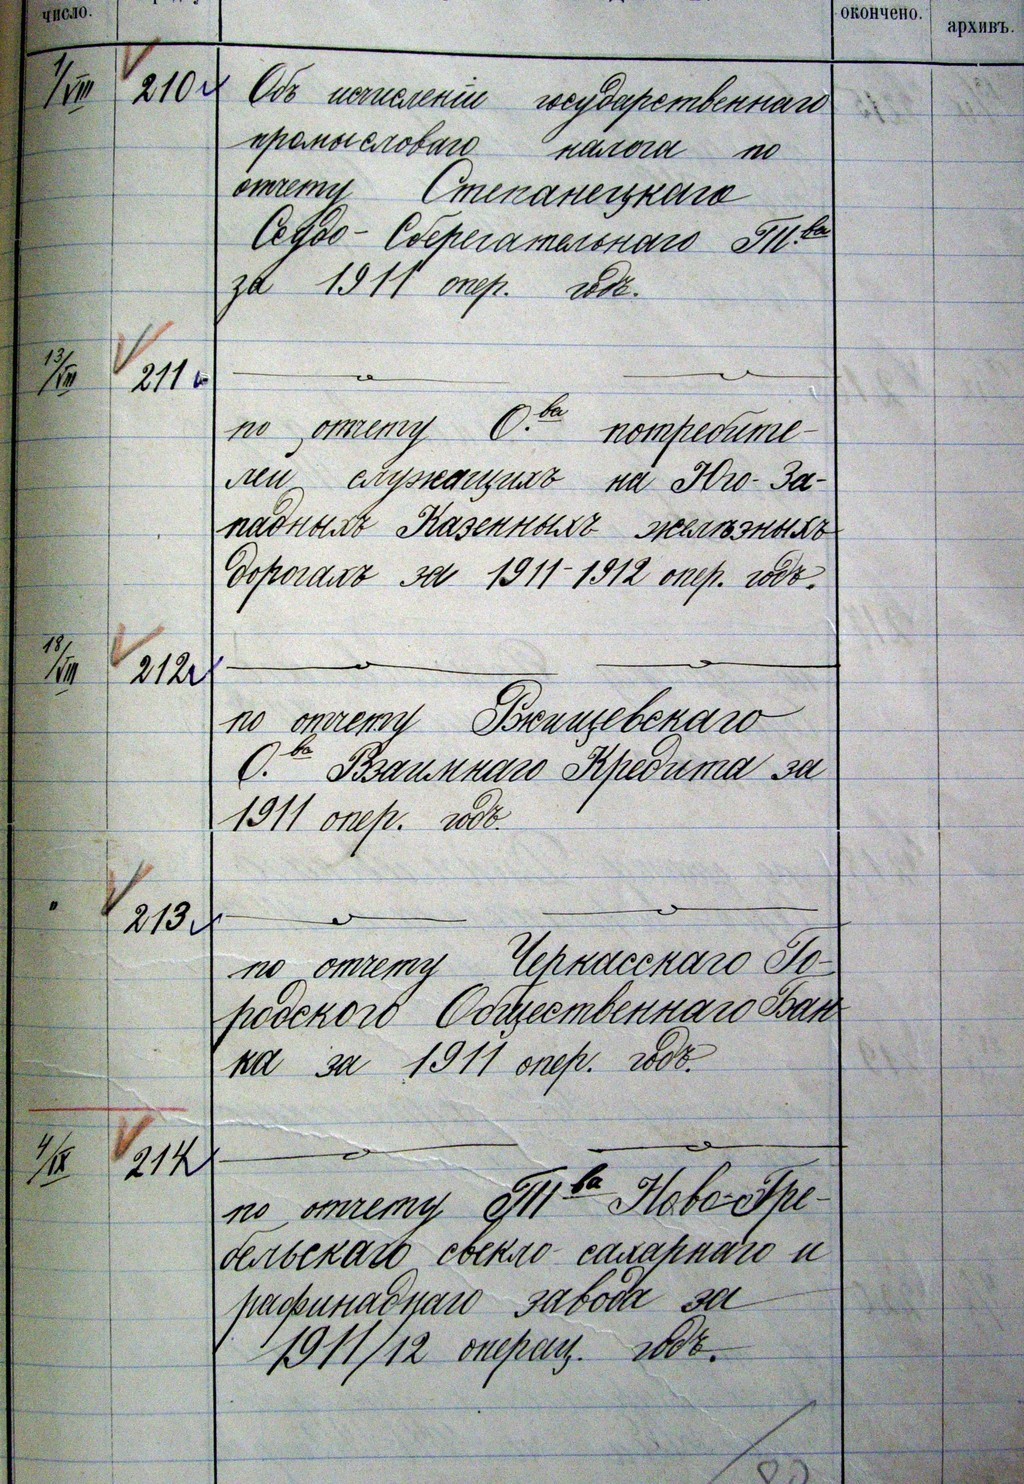 число.
окончено.
архивъ.
1/VIII 210 Объ исчисленіи государственнаго
промысловаго налога по
отчету Степанецкаго
Ссудо-Сберегательнаго Т.ва
за 1911 опер. годъ.
13/VIII 211
по отчету О.ва потребите-
лей служащихъ на Юго-За-
падныхъ Казенныхъ желѣзныхъ
дорогахъ за 1911-1912 опер. годъ.
18/VIII 212
по отчету Ржищевскаго
О.ва Взаимнаго Кредита за
1911 опер. годъ.
" 213
по отчету Черкасскаго Го-
родского Общественнаго Бан
ка за 1911 опер. годъ.
4/IX 214
по отчету Т ва Ново-Гре-
бельскаго свекло-сахарнаго и
рафинаднаго завода за
1911/12 операц. годъ.